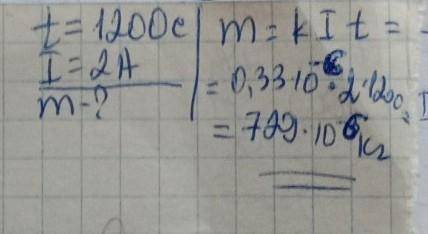 t = 1200c
I = 2A
m - ?
m = k I t =
= 0,33·10⁻⁶·2·1200
= 729·10⁻⁶ кг